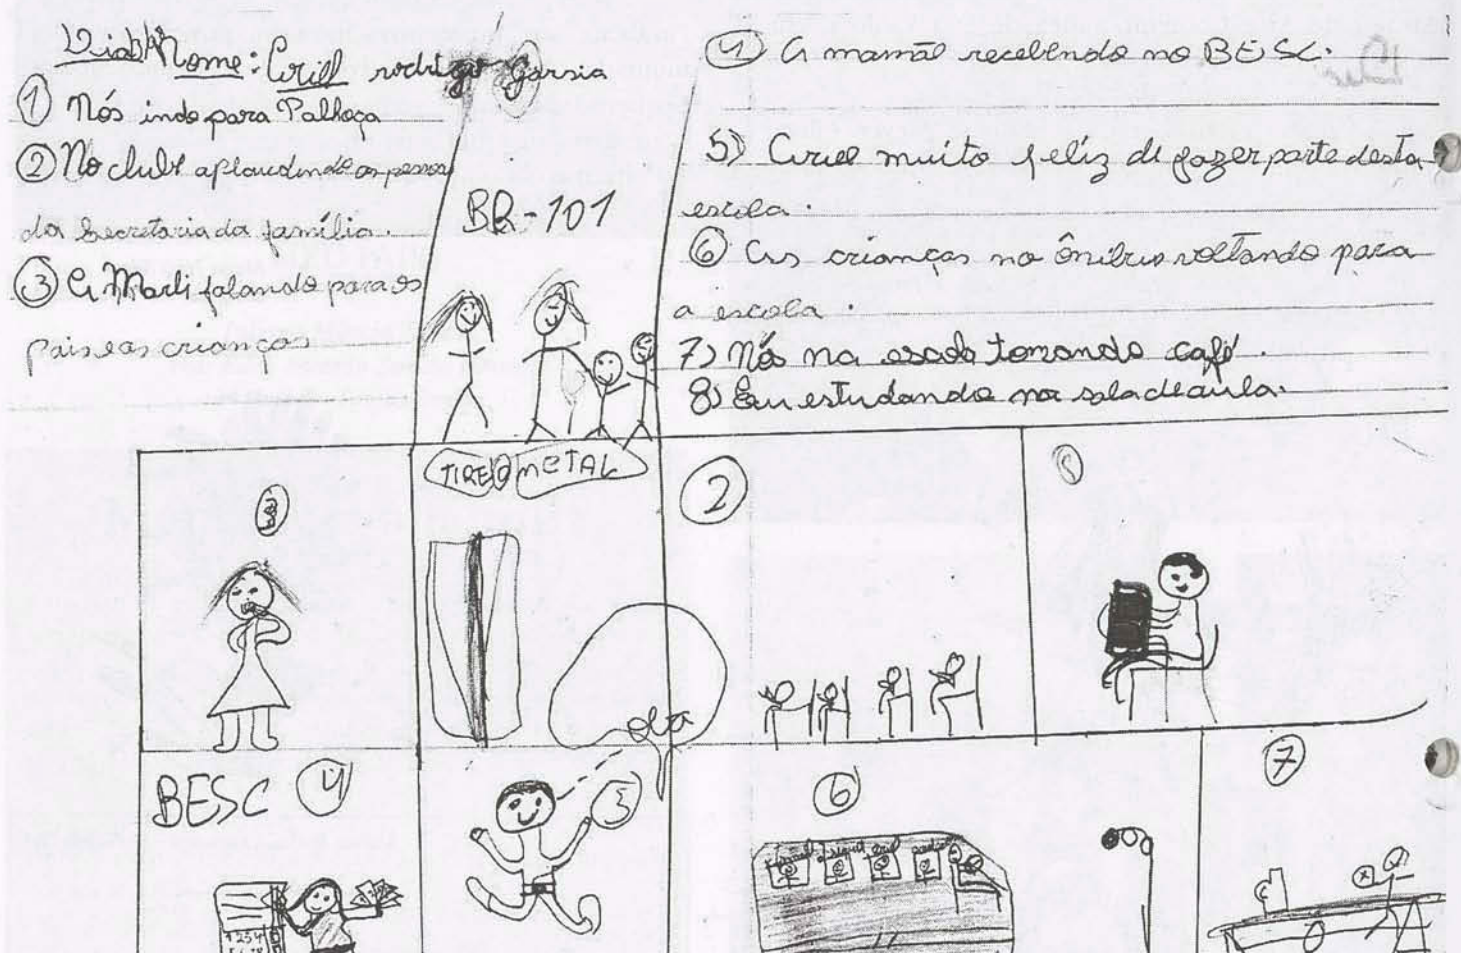 Nome: Ariel rodrigo Garsia
① Nós indo para Palhoça
② No clube aplaudindo as pessoas
da Secretaria da família.
③ A Marli falando para os
pais e as crianças
BR-101
④ A mamãe recebendo no BESC.
5) Ariel muito feliz di fazer parte desta
escola.
⑥ As crianças no ônibus voltando para
a escola.
7) Nós na escola tomando café.
8) Eu estudando na sala de aula.
TIRE O METAL
②
BESC ④
ola
⑥
⑦